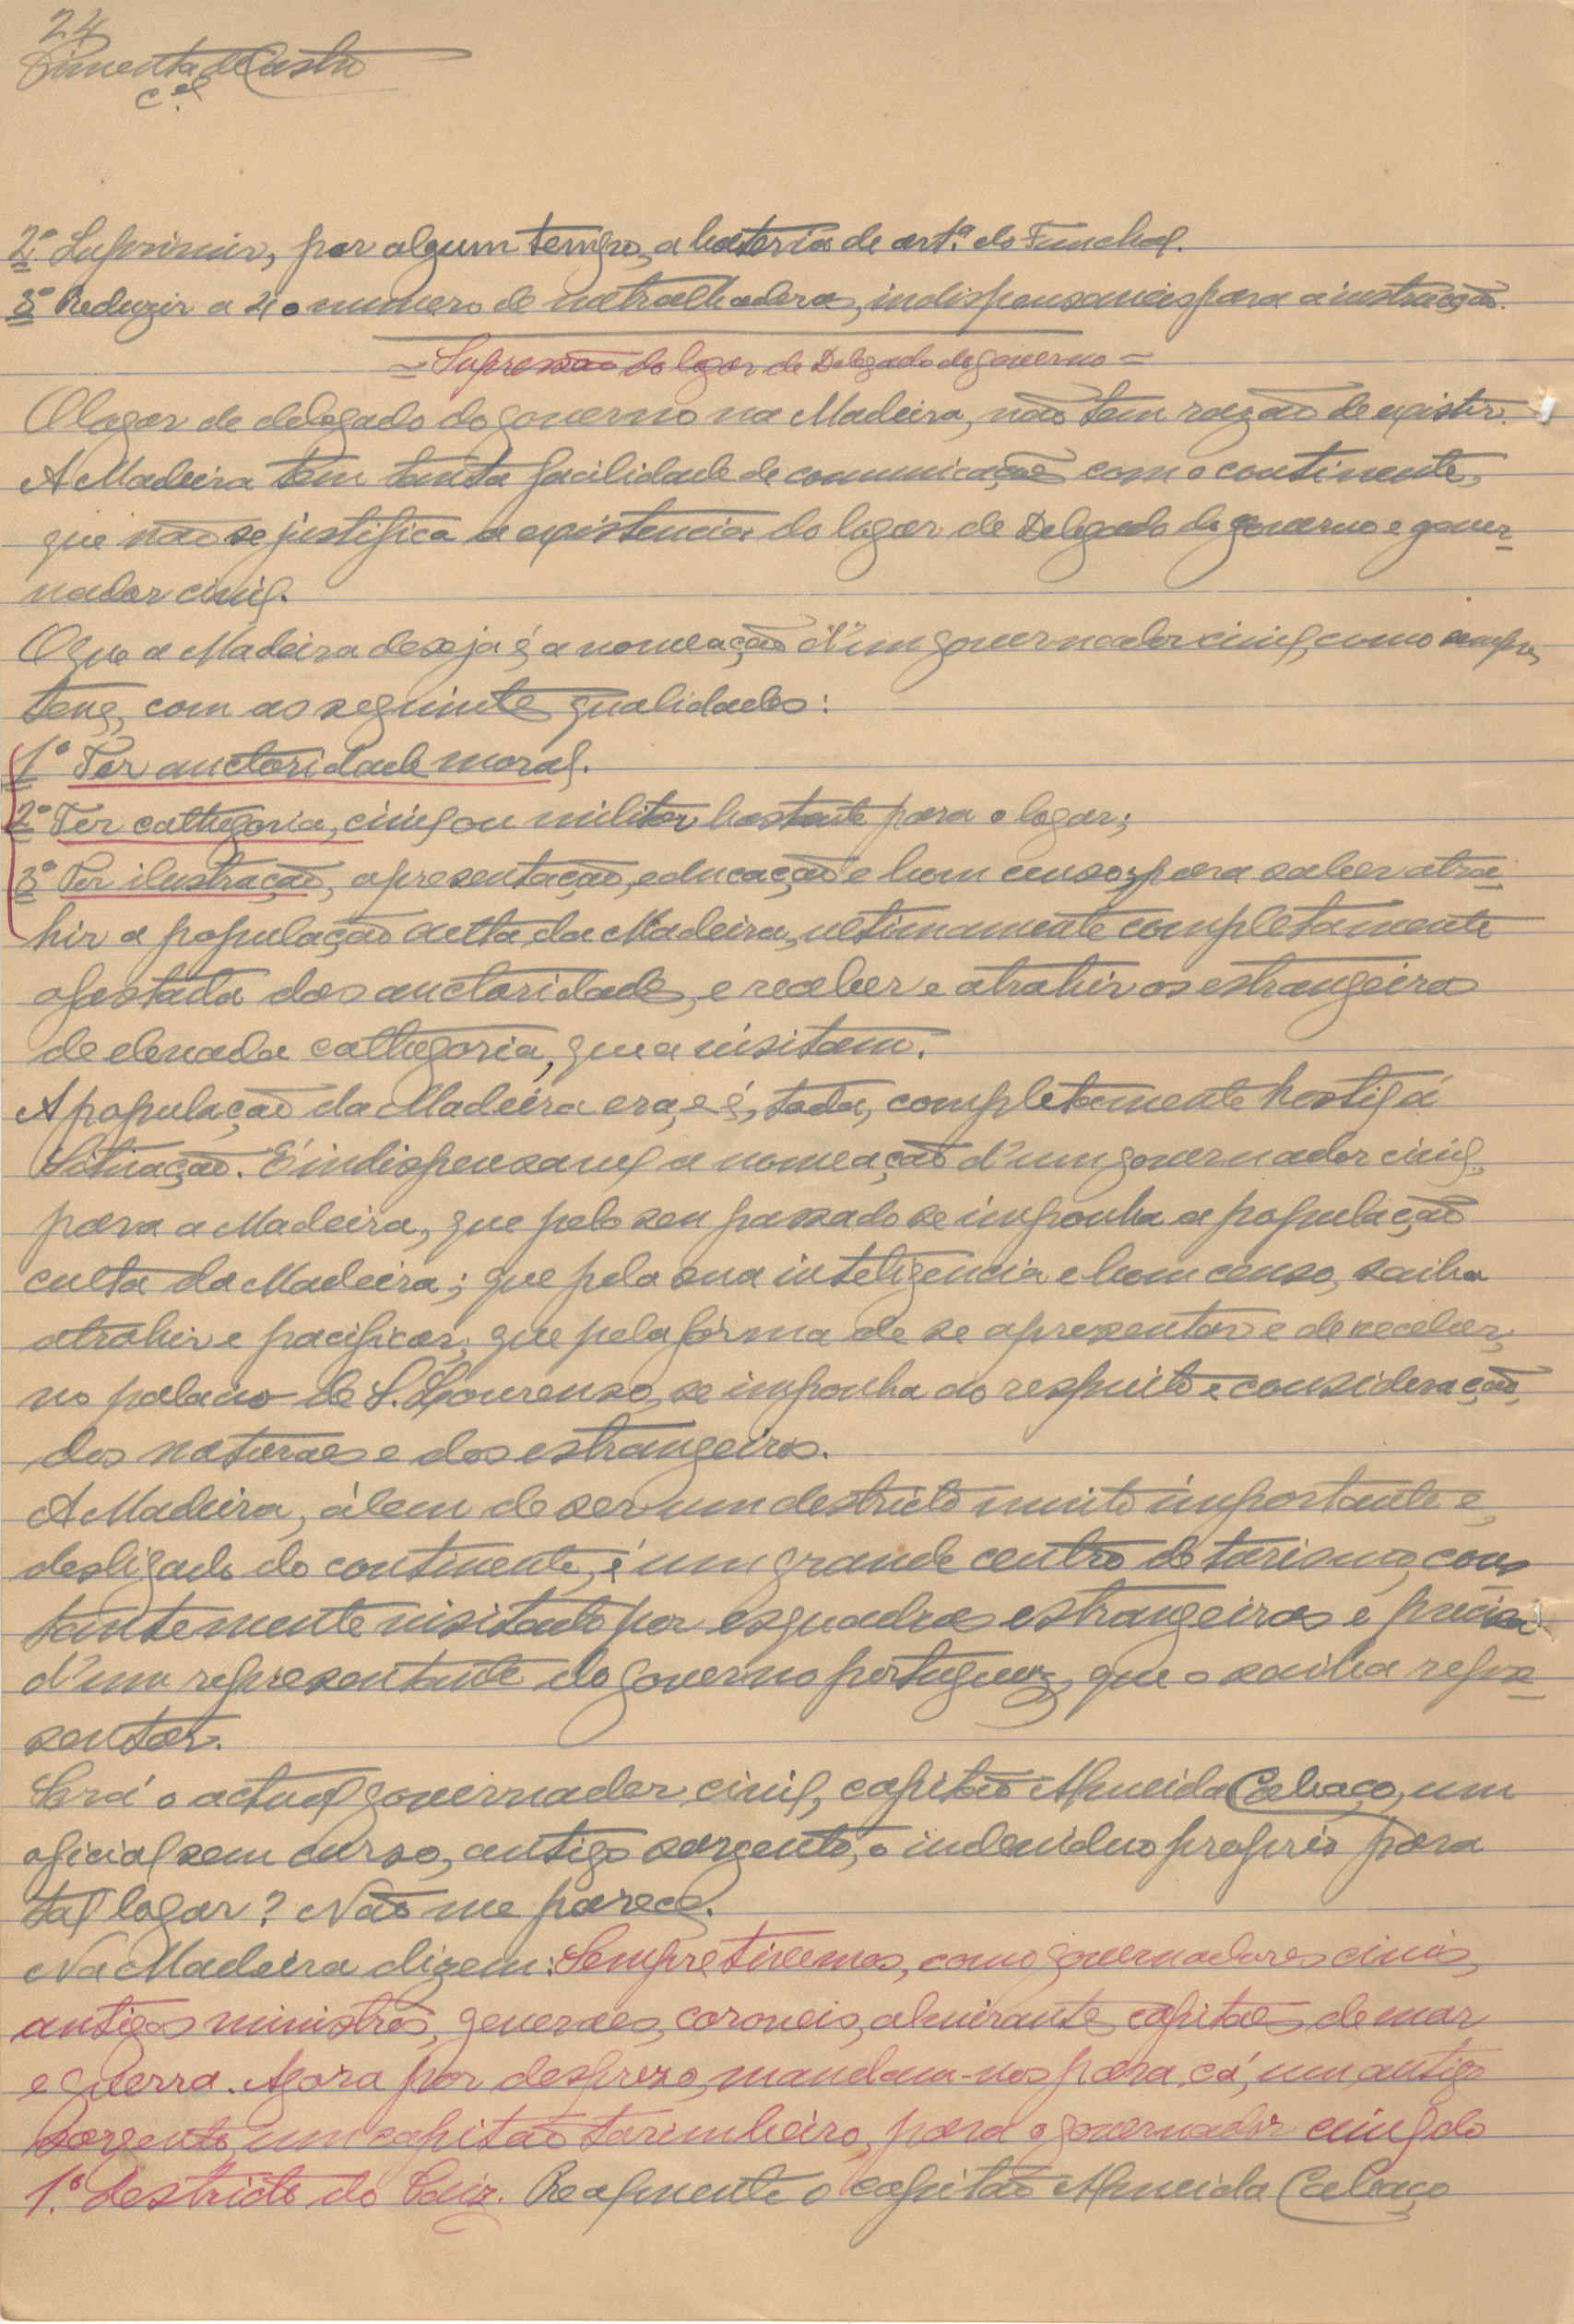 24
Pimenta de Castro
c.el
2º Suprimir, por algum tempo, a bateria de art.ª do Funchal.
3º Reduzir a 4 o numero de metralhadoras, indispensaveis para a instrucção.
= Supressão do logar de Delegado do governo =
O logar de delegado do governo na Madeira, não tem razão de existir.
A Madeira tem tanta facilidade de comunicações com o continente,
que não se justifica a existencia do logar de Delegado do governo e gover-
nador civil.
O que a Madeira deseja é a nomeação d'um governador civil, como sempre
teve, com as seguintes qualidades:
1º Ter auctoridade moral.
2º Ter cathegoria, civil ou militar bastante para o logar;
3º Ter ilustração, apresentação, educação e bom censo, para saber atra-
hir a população culta da Madeira, ultimamente completamente
afastada das auctoridades, e receber e atrahir os estrangeiros
de elevada cathegoria, que a visitam.
A população da Madeira era, e é, toda, completamente hostil á
Situação. É indispensavel a nomeação d'um governador civil,
para a Madeira, que pelo seu passado se imponha a população
culta da Madeira; que pela sua inteligencia e bom censo, saiba
atrahir e pacificar; que pela fórma de se apresentar e de receber,
no palacio de S. Lourenso, se imponha ao respeito e consideração,
dos naturaes e dos estrangeiros.
A Madeira, álem de ser um destricto muito importante e,
desligado do continente, é um grande centro de turismo, cons
tantemente visitado por esquadras estrangeiras e precisa
d'um representante do governo portuguez, que o saiba repre-
sentar.
Será o actual governador civil, capitão Almeida Cabaço, um
oficial sem curso, antigo sargento, o individuo proprio para
tal logar? Não me parece.
Na Madeira dizem: Sempre tivemos, como governadores civis,
antigos ministros, generaes, coroneis, almirantes, capitães de mar
e guerra. Agora por desprezo, mandam-nos para cá, um antigo
sargento, um capitão tarimbeiro, para o governador civil do
1.º destricto do Paiz. Realmente o capitão Almeida Cabaço